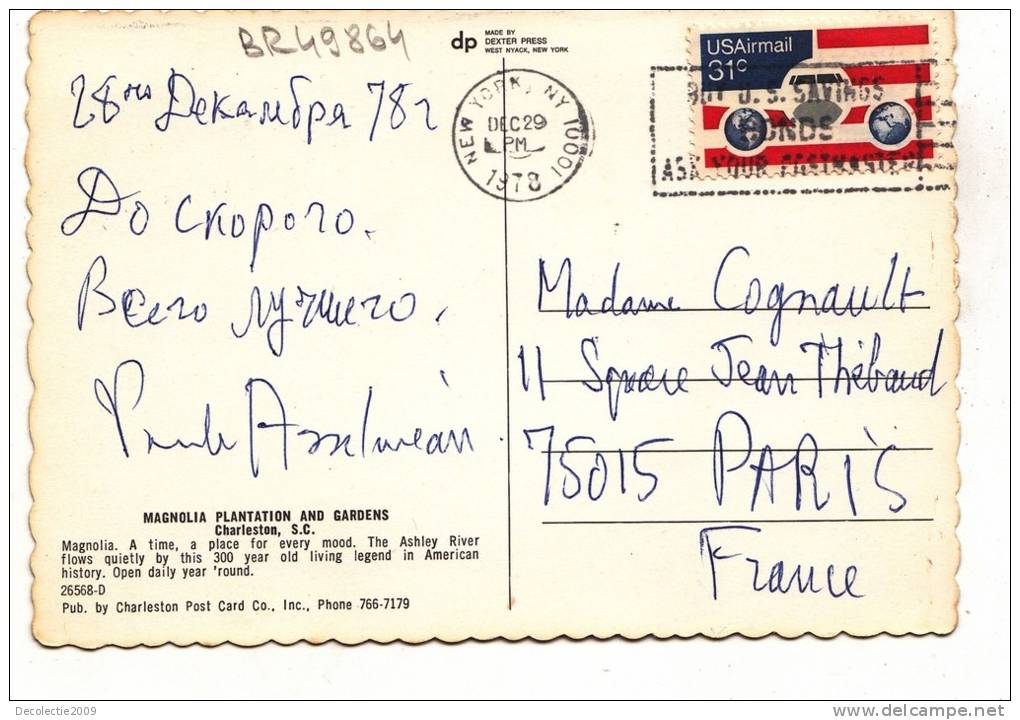 BR49864
dp MADE BY
DEXTER PRESS
WEST NYACK, NEW YORK
28го Декамбря 78г
До скорого.
Всего лучшего.
MAGNOLIA PLANTATION AND GARDENS
Charleston, S.C.
Magnolia. A time, a place for every mood. The Ashley River
flows quietly by this 300 year old living legend in American
history. Open daily year 'round.
26568-D
Pub. by Charleston Post Card Co., Inc., Phone 766-7179
NEW YORK, NY 10001
DEC 29
PM
1978
USAirmail
31c
BUY U.S. SAVINGS
BONDS
ASK YOUR POSTMASTER
Madame Cognault
11 Square Jean Thébaud
75015 PARIS
France
Decolectie2009
www.delcampe.net